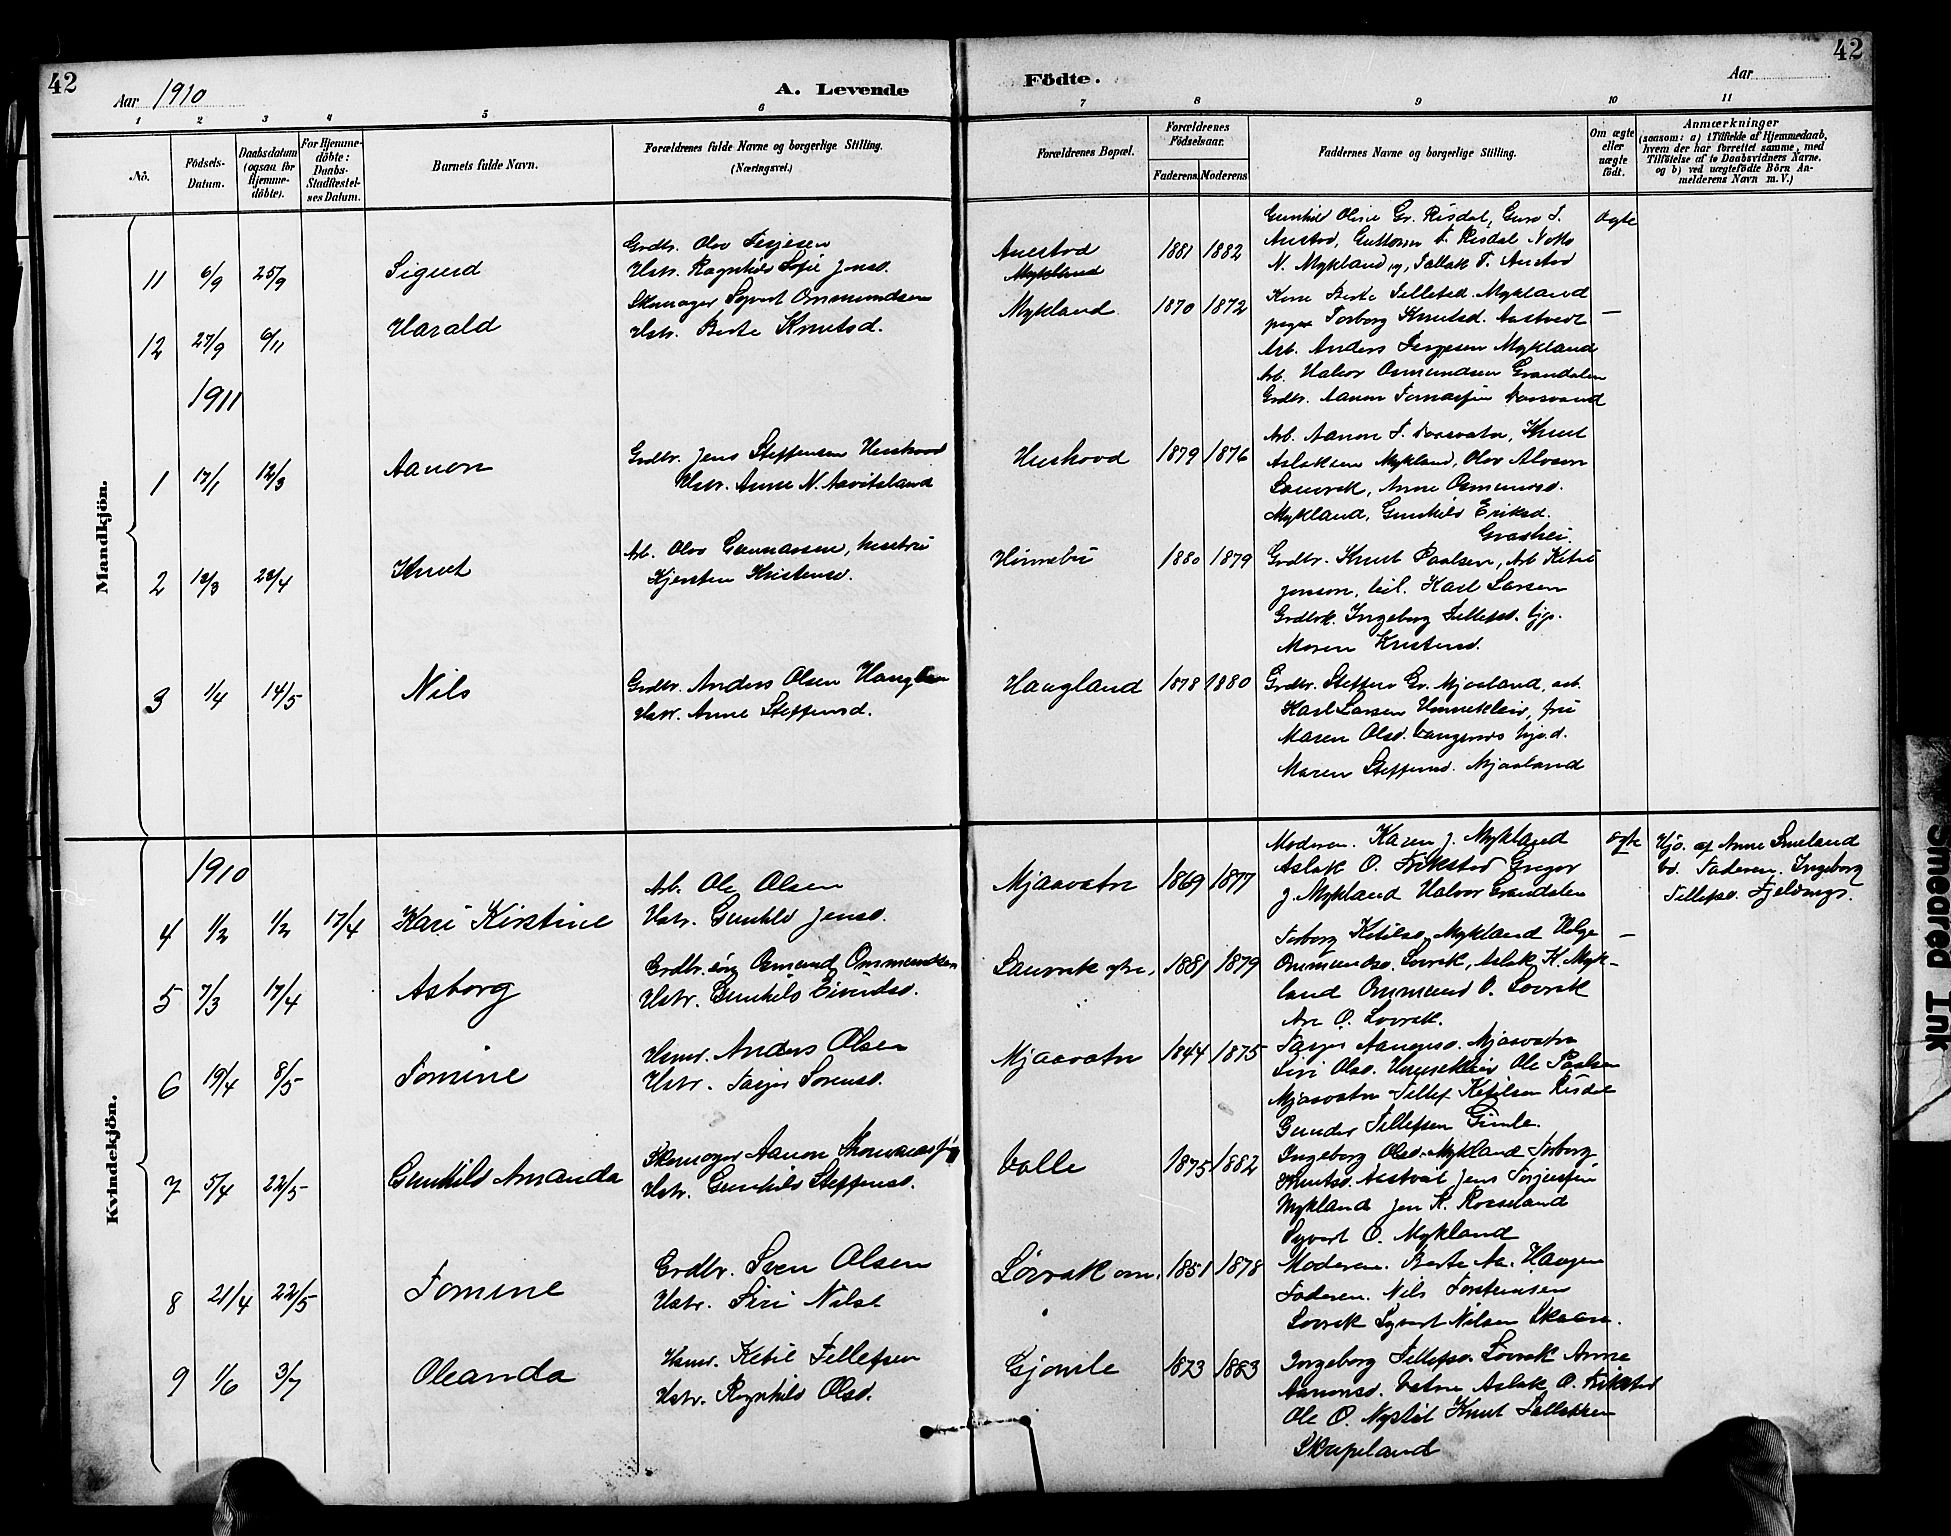 42
42
Aar 1910
A. Levende
Födte.
Aar
1 2 3 4 5 6 7 8 9 10 11
No.
Födsels-Datum.
Daabsdatum (ogsaa for Hjemme-döbte).
For Hjemme-döbte: Daabs-Stadfæstel-ses Datum.
Barnets fulde Navn.
Forældrenes fulde Navne og borgerlige Stilling.
(Næringsvei.)
Forældrenes Bopæl.
Forældrenes Födselsaar.
Faderens Moderens
Faddernes Navne og borgerlige Stilling.
Om ægte eller uægte födt.
Anmærkninger
(saasom: a) i Tilfælde af Hjemmedaab,
hvem der har forrettet samme, med
Tilföielse af to Daabsvidners Navne,
og b) ved uægtefödte Börn An-
melderens Navn m. V.)
Mandkjön.
11 6/9 25/9 Sigurd
Grdbr. Olov Terjesen
Hstr. Ragnhild Sofie Jensd.
Austad
Mykland
1881 1882
Gunhild Oline Gr. Risdal, Guro T.
Austad, Guttorm T. Risdal Notto
N. Mykland og Tallak T. Austad
ægte
12 27/9 6/11 Harald
Skomager Syvert Ommundsen
Hstr. Berte Knutsd.
Mykland. 1870 1872
Kone Berte Tellefsd. Mykland
pige Torborg Knutsd. Austvedt
Arb. Anders Terjesen Mykland
Arb. Halvor Osmundsen Grandalen
—
1911
1 17/1 12/3 Aanon
Grdbr. Jens Steffensen Heshovd
Hstr. Anne N. Aavitsland
Heshovd 1879 1876
Grdbr. Aanon Tomassen
Arb. Aanon T. Knut
Aslaksen Mykland, Olov Alvson
Laurak, Anne Osmunsd.
Mykland, Gunhild Eriksd.
Grashei.
2 12/3 23/4 Knut
Arb. Olov Gunnarsen, hustru
Kjersten Kristensd.
Hinnebu 1880 1879
Grdbr. Knut Paalsen, Arb Ketil
Jonson, Karl Larsen
Grdbrk. Ingeborg Tellefsd.
Maren Kristensd.
3 1/4 14/5 Nils
Grdbr. Anders Olsen Haugland
Hstr. Anne Steffensd.
Haugland 1878 1880
Grdbr. Steffen Gr. Mjaaland, arb.
Karl Larsen Unnekleiv, fru
Maren Olsd. Vangsnes
Maren Steffensd. Mjaaland
Kvindekjön.
1910
4 1/2 1/2 17/4 Kari Kirstine
Arb. Ole Olsen
Hstr. Gunhild Jensd.
Mjaavatn 1869 1877
Moderen. Karen J. Mykland
Aslak O. Frikstad Gregor
J. Mykland Halvor Grandalen
ægte
Hjd. af Anne Smeland
Vd. Faderen. Ingeborg
Tellefsd. Fjeldnygs.
5 7/3 17/4 Asborg
Grdbr. sön Osmund Ommundsen
Hstr. Gunhild Eivindsd.
Laurak 1881 1879
Torborg Ketilsd. Mykland Helge
Ommundsd. Lovrak, Aslak K. Myk-
land Ommund O. Lovrak
Are O. Lovrak.
—
6 19/4 8/5 Tomine
Husm. Anders Olsen
Hstr. Tarjer Sorensd.
Mjaavatn 1844 1875
Tarjer Aanonsd. Mjaavatn
Siri Olsd. Unnekleiv Ole Paalsen
Mjaavatn Tellef Ketilsen Risdal
Gunder Tellefsen Gimle.
7 5/4 22/5 Gunhild Amanda
Skomager Aanon Thomassen
Hstr. Gunhild Steffensd.
Valle 1875 1882
Ingeborg Olsd. Mykland Torborg
Knutsd. Austvat Jens Torjussen
Mykland Jen K. Rosseland
Syvert O. Mykland
8 21/4 22/5 Tomine
Grdbr. Sven Olsen
Hstr. Siri Nilsd
Lovrak 1851 1878
Moderen. Berte Aa. Haugen
Faderen. Nils Torstensen
Lovrak Syvert Nilsen Skaare.
9 1/6 3/7 Oleanda
Husm. Ketil Tellefsen
Hstr. Ragnhild Olsd.
Gjomle 1873 1883
Ingeborg Tellefsd. Lovrak Anne
Aanonsd. Vatne Aslak O. Frikstad
Ole O. Nystöl Knut Tallaksen
Skripeland
Smeared Ink